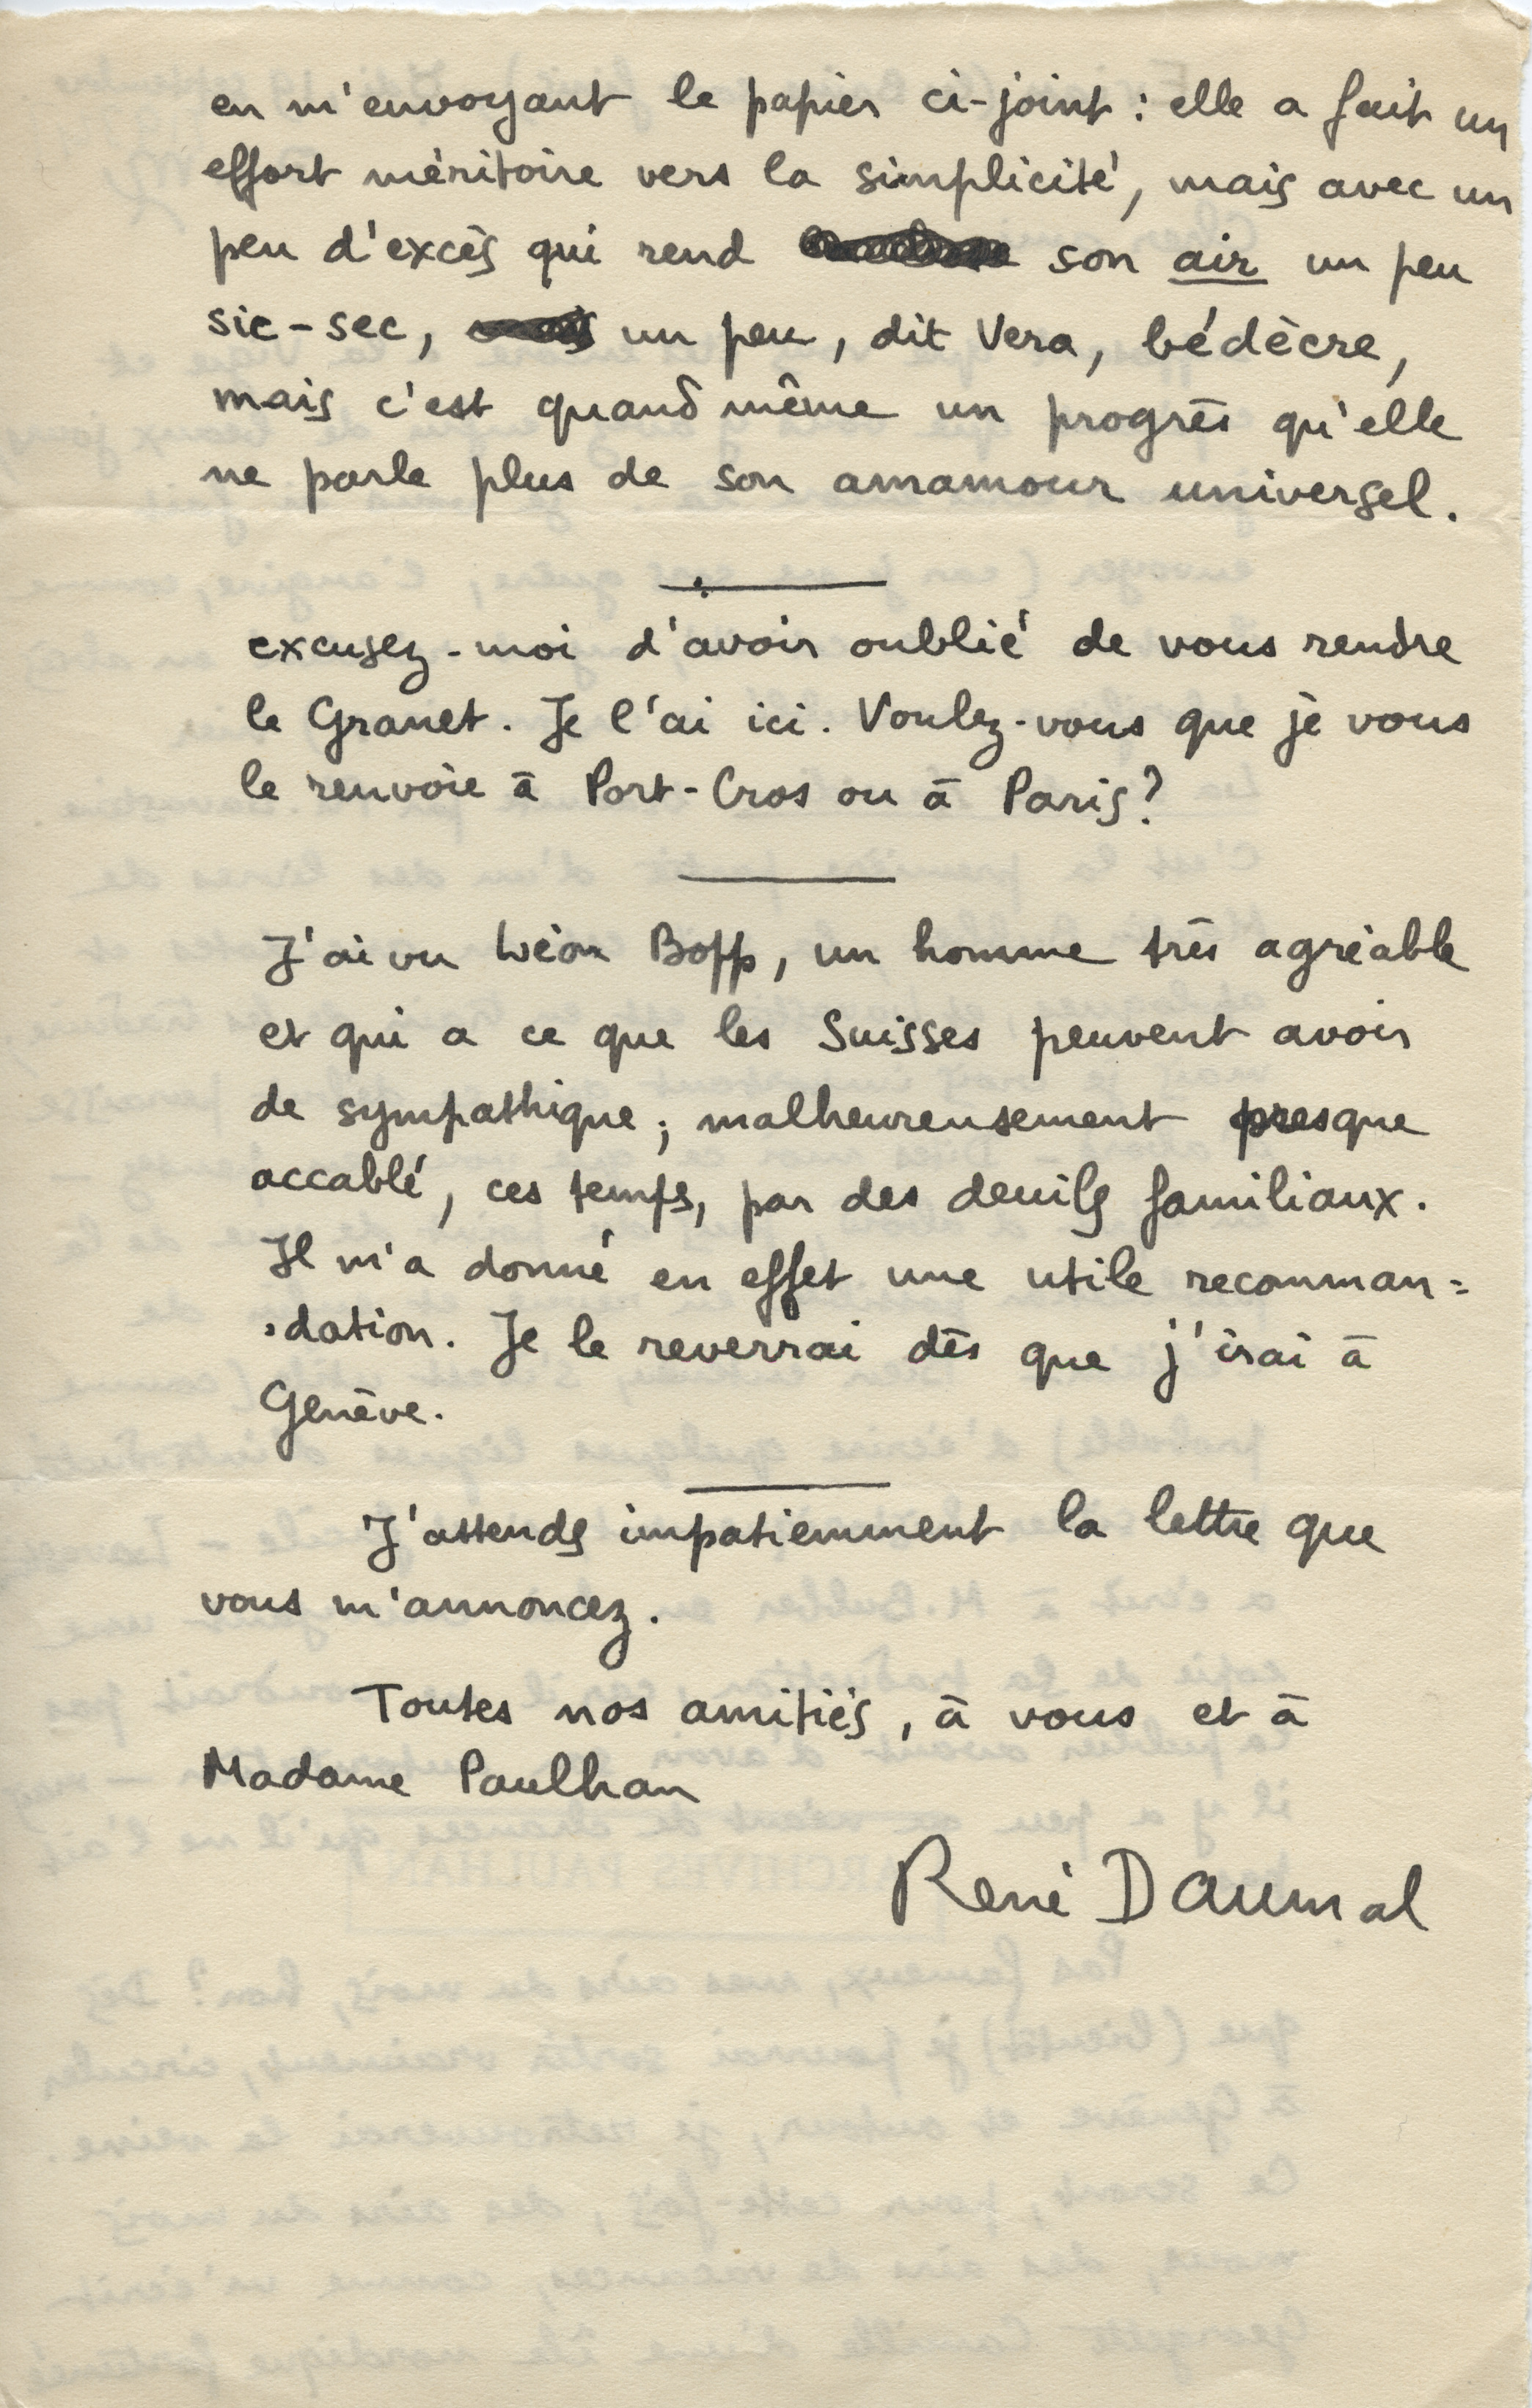 en m'envoyant le papier ci-joint : elle a fait un
effort méritoire vers la simplicité, mais avec un
peu d'excès qui rend son air un peu
sic-sec, un peu, dit Vera, bédècre,
mais c'est quand même un progrès qu'elle
ne parle plus de son amamour universel.
excusez-moi d'avoir oublié de vous rendre
le Granet. Je l'ai ici. Voulez-vous que je vous
le renvoie à Port-Cros ou à Paris?
J'ai vu Léon Bopp, un homme très agréable
et qui a ce que les Suisses peuvent avoir
de sympathique; malheureusement presque
accablé, ces temps, par des deuils familiaux.
Il m'a donné en effet une utile recomman=
dation. Je le reverrai dès que j'irai à
Genève.
J'attends impatiemment la lettre que
vous m'annoncez.
Toutes nos amitiés, à vous et à
Madame Paulhan
René Daumal